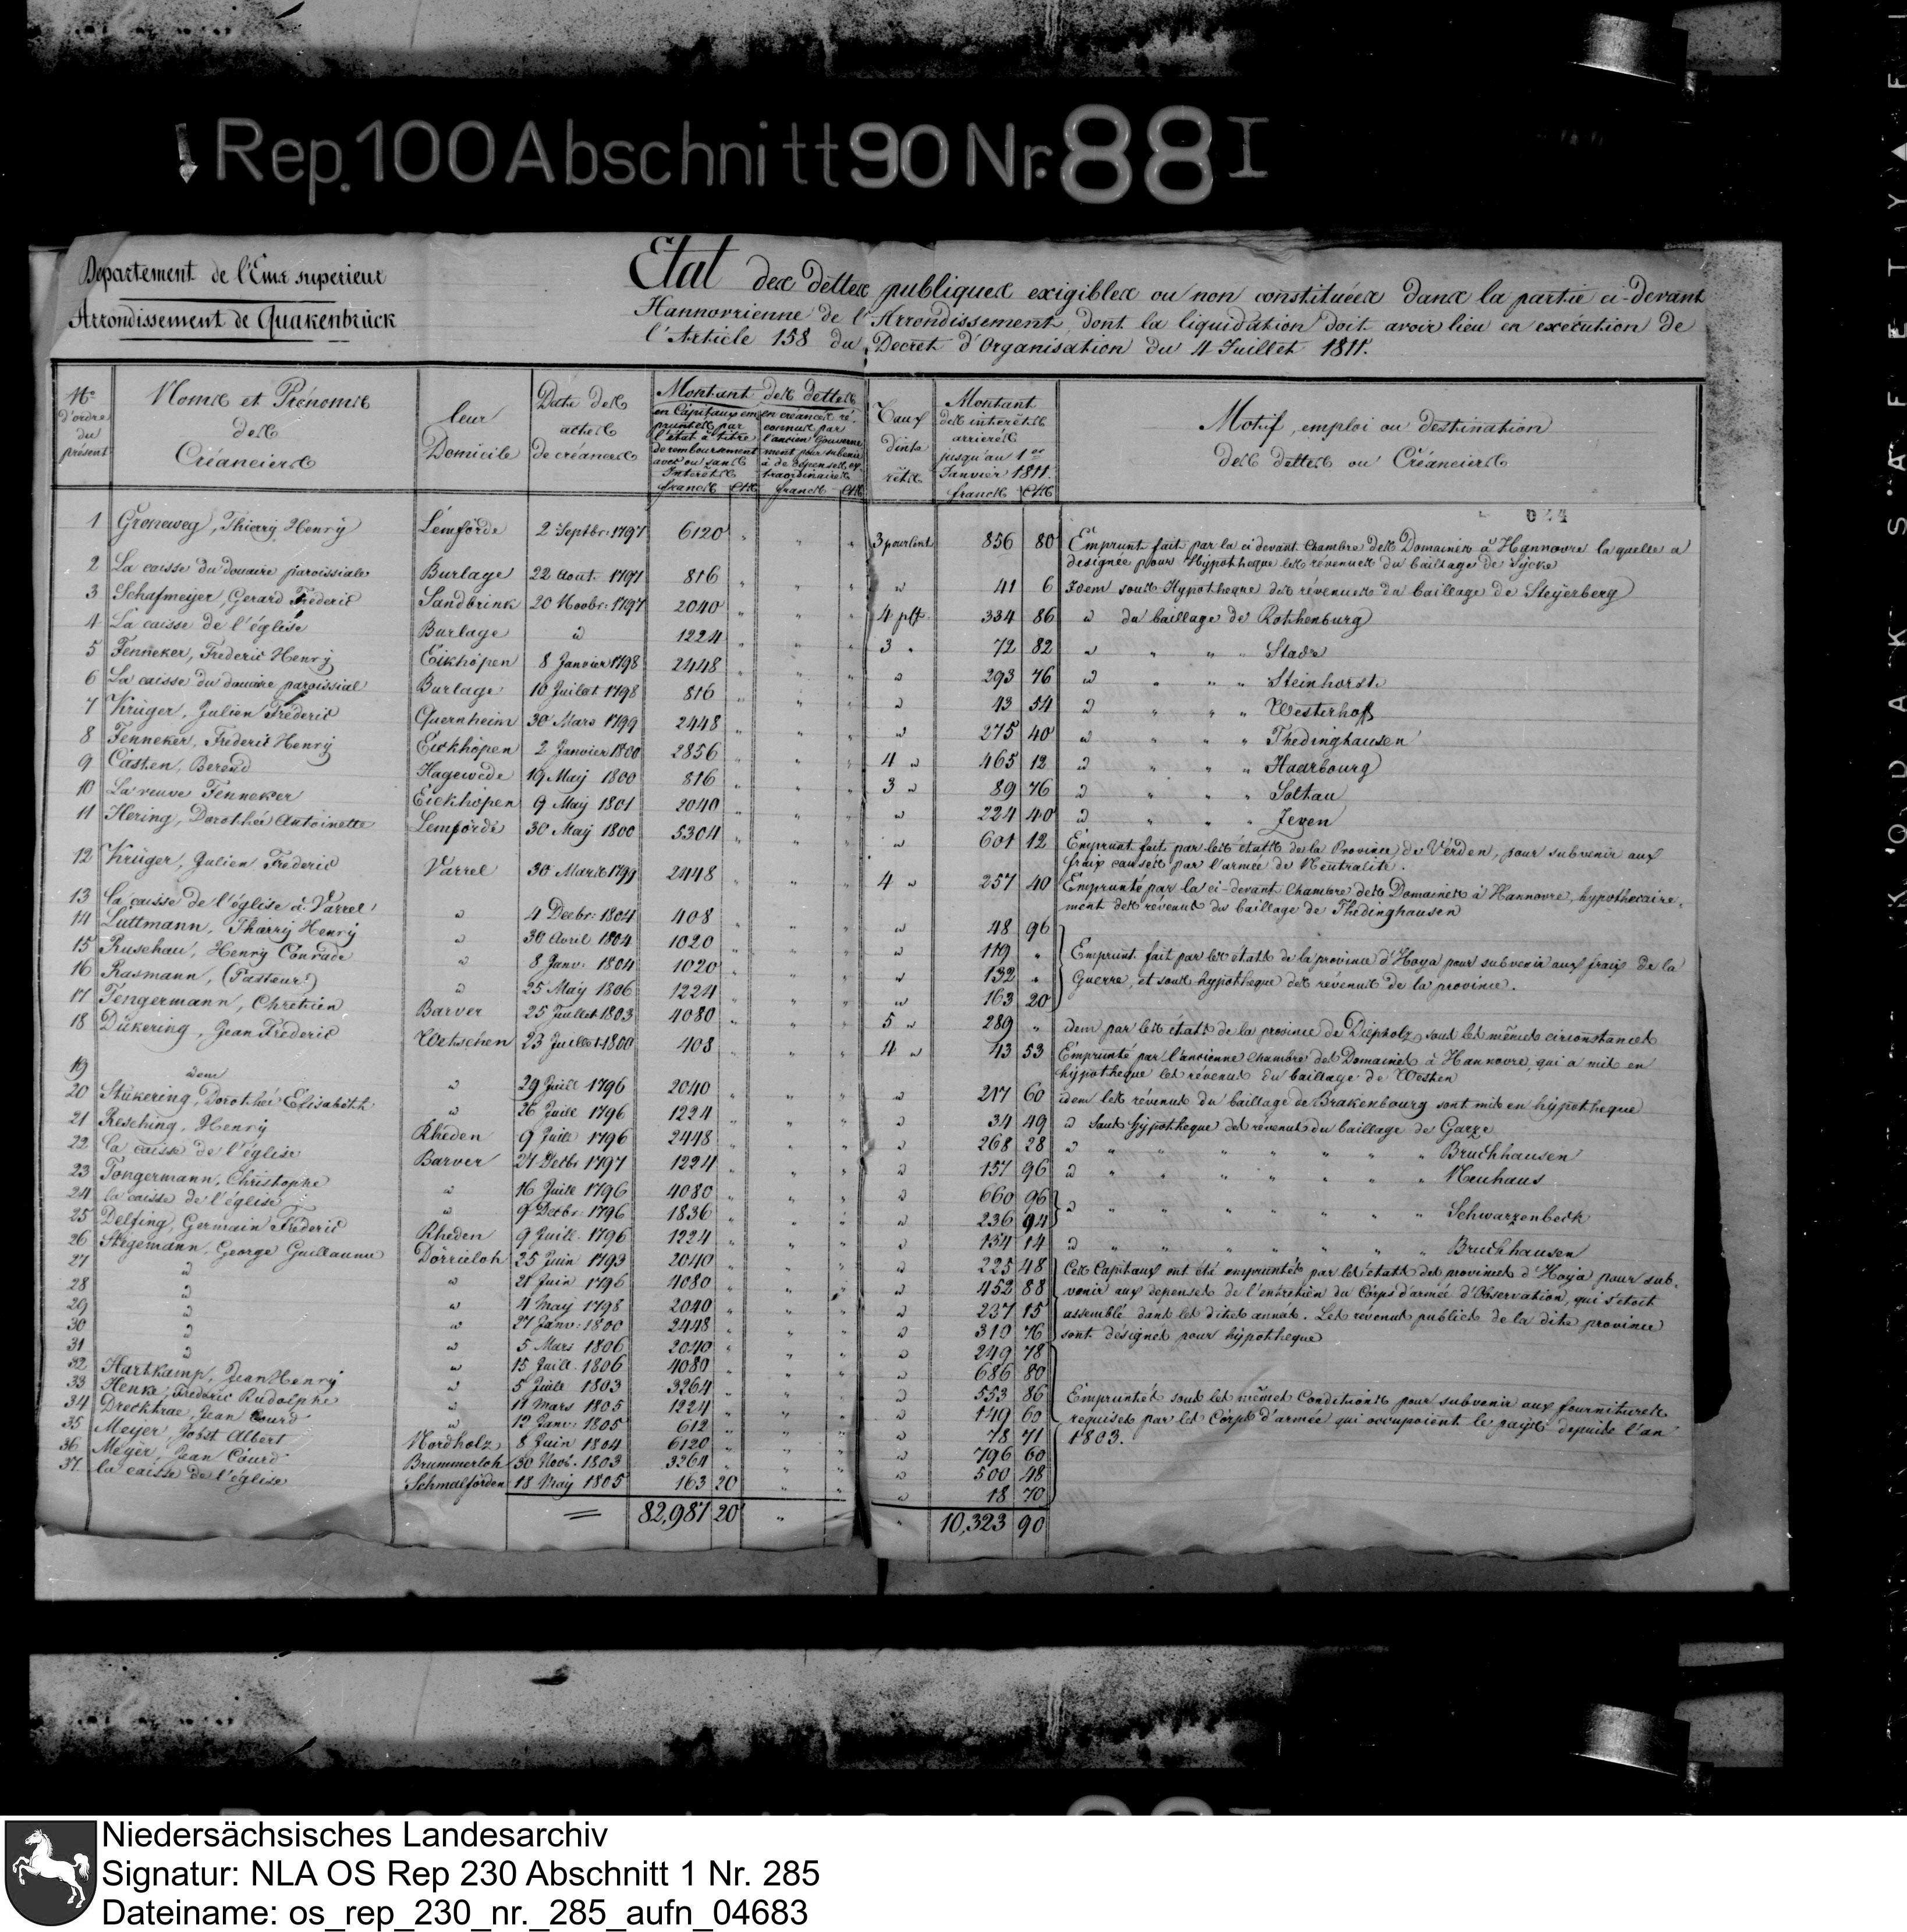 Rep. 100 Abschnitt 90 Nr. 88 I
Departement de l'Ems superieur
Arrondissement de Quakenbrück
Etat des dettes publiques exigibles ou non constituées dans la partie ci-devant
Hannovrienne de l'Arrondissement, dont la liquidation doit avoir lieu en execution de
l'Article 158 du Decret d'Organisation du 4 Juillet 1811.
No. d'ordre du présent
Noms et Prénoms des Créanciers
leur Domicile
Date des actes de créances
Montant des dettes
en Capitaux empruntés par l'état à titre de remboursement avec ou sans Intérêts
francs cts
en créances reconnues par l'ancien Gouvernement pour subvenir à de dépenses extraordinaires
francs cts
Taux d'intérêts
Montant des interêts arrierés jusqu'au 1er Janvier 1811.
francs cts
Motif, emploi ou destination des dettes ou Créanciers
044
1 Groneweg, Thierry Henry Lemförde 2 Septbr. 1797 6120 " " " 3 pour Cent 856 80 Emprunt fait par la ci devant Chambre des Domaines à Hannovre la quelle a
designée pour Hypotheque les révenues du bailage de Sycke
2 La caisse du douaire paroissiale Burlage 22 Aout 1797 816 " " " " 41 6 Idem sous Hypotheque des révenues du baillage de Steyerberg
3 Schafmeyer, Gerard Frederic Sandbrink 20 Novbr. 1797 2040 " " " 4 pCt. 334 86 " du baillage de Rothenburg
4 La caisse de l'église Burlage " 1224 " " " 3 " 72 82 " " " " Stade
5 Fenneker, Frederic Henry Eikhöpen 8 Janvier 1798 2448 " " " " 293 76 " " " " Steinhorst
6 La caisse du douaire paroissial Burlage 10 Juilet 1798 816 " " " " 43 54 " " " " Westerhoff
7 Krüger, Julien Frederic Quernheim 30 Mars 1799 2448 " " " " 275 40 " " " " Thedinghausen
8 Fenneker, Frederic Henry Eickhöpen 2 Janvier 1800 2856 " " " 4 " 465 12 " " " " Haarbourg
9 Casten, Berend Hagewede 19 May 1800 816 " " " 3 " 89 76 " " " " Soltau
10 La veuve Fenneker Eickhöpen 9 May 1801 2040 " " " " 224 40 " " " " Zeven
11 Hering, Dorothée Antoinette Lemförde 30 May 1800 5304 " " " " 601 12 Emprunt fait par les états de la Province de Verden, pour subvenir aux
fraix causés par l'armée de Neutralité.
12 Krüger, Julien Frederic Varrel 30 Mars 1799 2448 " " " 4 " 257 40 Emprunté par la ci-devant Chambre des Domaines à Hannovre, hypothecaire-
ment des révenus du baillage de Thedinghausen
13 La caisse de l'église à Varrel " 4 Decbr. 1804 408 " " " " 48 96
14 Luttmann, Thierry Henry " 30 Avril 1804 1020 " " " " 119 " Emprunt fait par les états de la province d'Hoya pour subvenir aux fraix de la
15 Ruschau, Henry Conrade " 8 Janv. 1804 1020 " " " " 132 " Guerre, et sous hypotheque des révenus de la province.
16 Rasmann, (Pasteur) " 25 May 1806 1224 " " " " 163 20
17 Tengermann, Chretien Barver 25 Juillet 1803 4080 " " " 5 " 289 " idem par les états de la province de Diepholz, sous les mêmes circonstances
18 Dükering, Jean Frederic Wetschen 23 Juillet 1800 408 " " " 4 " 43 53 Emprunté par l'ancienne Chambre des Domaines à Hannovre, qui a mis en
hypotheque les révenus du baillage de Westen
19 idem " 29 Juill 1796 2040 " " " " 217 60 idem les révenus du baillage de Brakenbourg sont mis en hypotheque
20 Stükering, Dorothée Elisabeth " 26 Juill 1796 1224 " " " " 34 49 " sous hypotheque des revenus du baillage de Garze
21 Resching, Henry Rheden 9 Juill 1796 2448 " " " " 268 28 " " " " " " " Bruchhausen
22 La caisse de l'église Barver 21 Decbr 1797 1224 " " " " 157 96 " " " " " " " Neuhaus
23 Tongermann, Christophe " 16 Juill 1796 4080 " " " " 660 96
24 la caisse de l'église " 9 Decbr. 1796 1836 " " " " 236 94 " " " " " " " Schwarzenbeck
25 Delfing, Germain Frederic Rheden 9 Juill. 1796 1224 " " " " 134 14 " " " " " " " Bruchhausen
26 Stegemann, George Guillaume Dörrieloh 25 Juin 1793 2040 " " " " 225 48 Ces Capitaux ont été empruntés par les états des provinces d'Hoya pour sub-
27 " " 21 Juin 1796 4080 " " " " 452 88 venir aux depenses de l'entretien du Corps d'armée d'Observation, qui s'etoit
28 " " 4 May 1798 2040 " " " " 237 15 assemblé dans les dites années. Les révenus publics de la dite province
29 " " 27 Janv. 1800 2448 " " " " 310 76 sont désignés pour hypotheque
30 " " 5 Mars 1806 2040 " " " " 249 78
31 " " 15 Juill. 1806 4080 " " " " 686 80
32 Hartkamp, Jean Henry " 5 Juill 1803 3264 " " " " 553 86 Empruntés sous les mêmes Conditions pour subvenir aux fournitures
33 Henke, Frederic Rudolphe " 11 Mars 1805 1224 " " " " 149 60 requises par les Corps d'armée qui occupoient le pays depuis l'an
34 Drecktrae, Jean Courd " 12 Janv. 1805 612 " " " " 78 71 1803.
35 Meyer, Jobst Albert Nordholz 8 Juin 1804 6120 " " " " 796 60
36 Meyer, Jean Courd Brummerloh 30 Novb. 1803 3264 " " " " 500 48
37 la caisse de l'église Schmalförden 18 May 1805 163 20 " " " 18 70
82,981 20 " " 10,323 90
Niedersächsisches Landesarchiv
Signatur: NLA OS Rep 230 Abschnitt 1 Nr. 285
Dateiname: os_rep_230_nr._285_aufn_04683